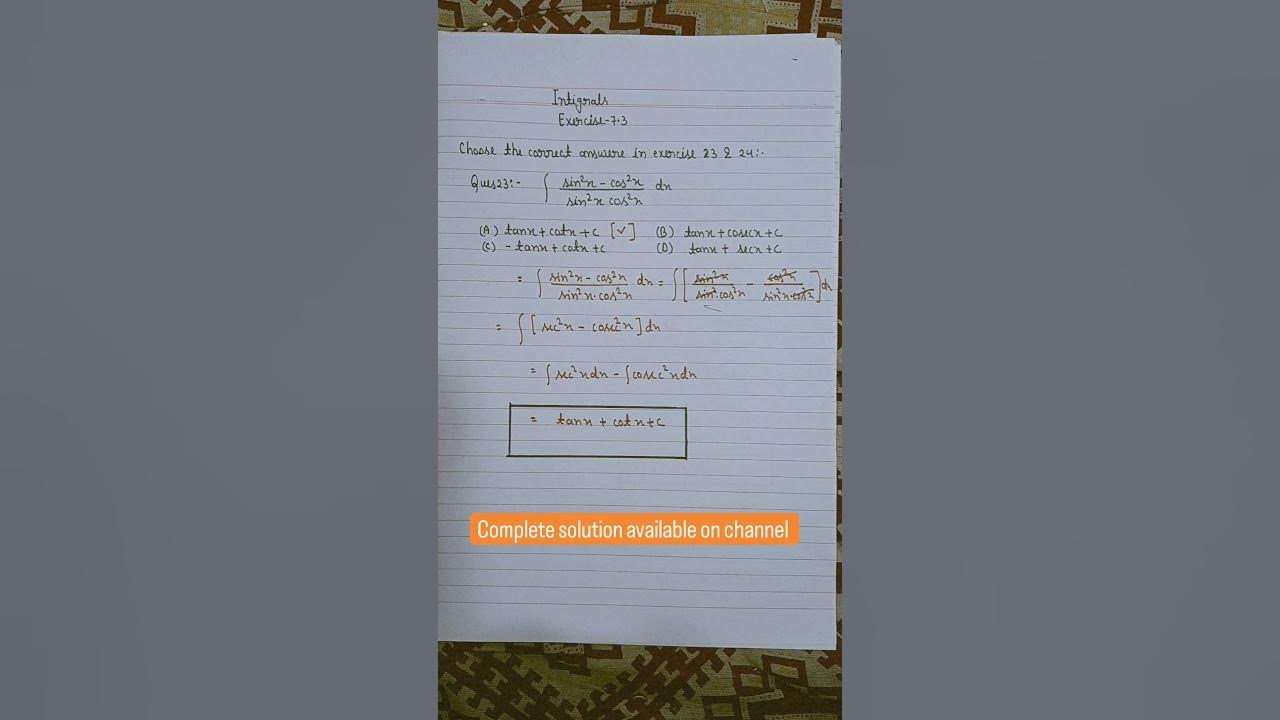 Intigrals
Exercise-7.3
Choose the correct answere in exercise 23 & 24:-
Ques23:- ∫ (sin²x - cos²x)/(sin²x cos²x) dx
(A) tanx + cotx + c [✓] (B) tanx + cosecx + c
(C) - tanx + cotx + c (D) tanx + secx + c
= ∫ (sin²x - cos²x)/(sin²x·cos²x) dx = ∫ [ sin²x/(sin²·cos²x) - cos²x/(sin²x·cos²x) ] dx
= ∫ [ sec²x - cosec²x ] dx
= ∫ sec²x dx - ∫ cosec²x dx
= tanx + cotx + c
Complete solution available on channel